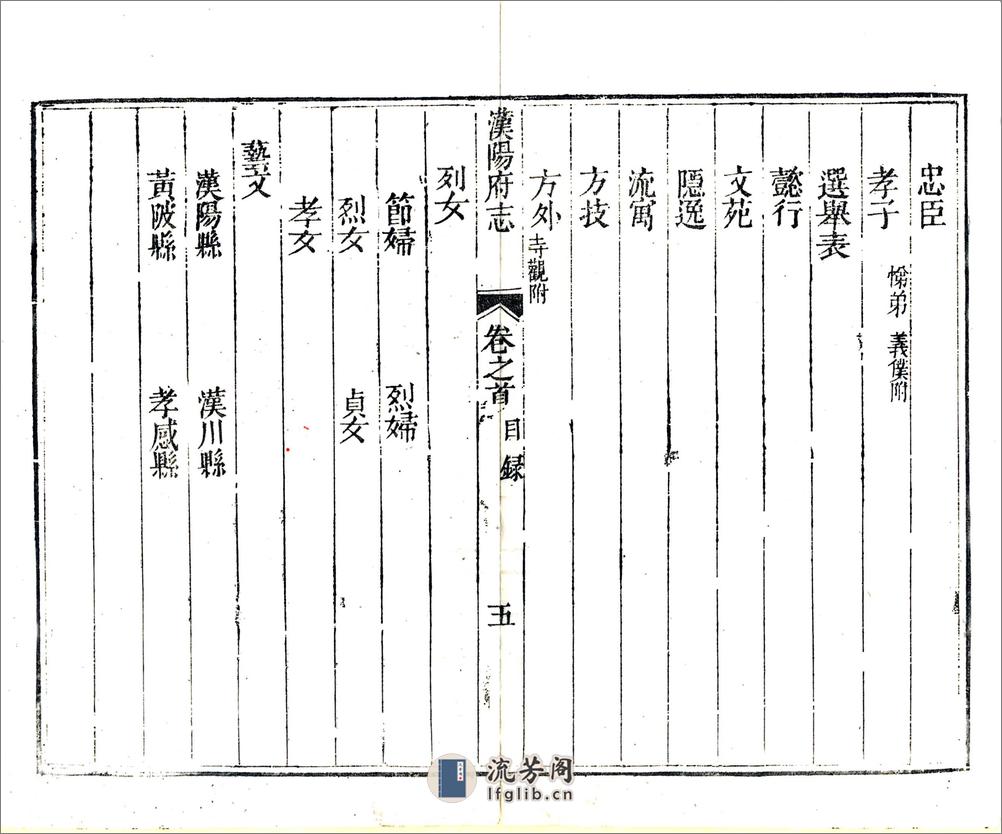 忠臣
孝子 悌弟 義僕附
選舉表
懿行
文苑
隱逸
流寓
方技
方外 寺觀附
漢陽府志 卷之首 目録 五
列女
節婦 烈婦
烈女 貞女
孝女
藝文
漢陽縣 漢川縣
黃陂縣 孝感縣
流芳阁
lfglib.cn